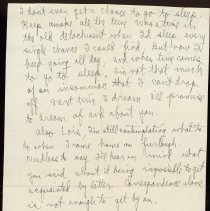 I don't even get a chance to go to sleep.
Keep awake all the time. What a time. At
the old detachment when I'd sleep every
single chance I could find. But now I'd
keep going all day, and when time comes
to go to sleep. I'm not that much
of an insomniac that I can't drop
off. Next time I dream I'll promise
to dream of and about you.
Also Lois, I'm still contemplating what to
do when I come home on furlough.
Needless to say I'll bear in mind what
you said about it being impossible to get
acquainted by letter. Correspondence alone
is not enough to get by on.